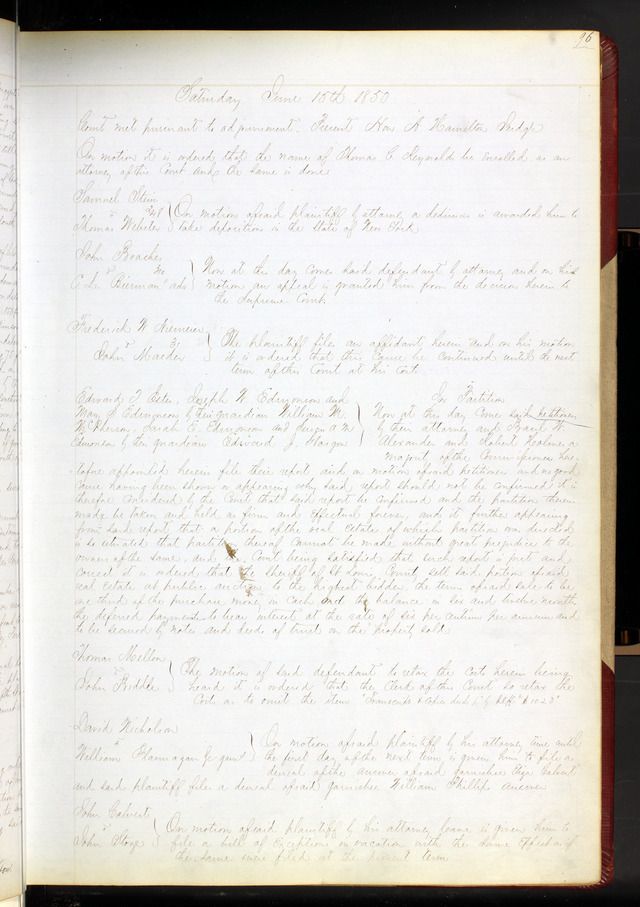 96
Saturday June 15th 1850
Court met pursuant to adjournment. Present Hon A Hamilton Judge
On motion it is ordered that the name of Thomas C Reynolds be enrolled as an
attorney of this Court and the same is done
Samuel Stein
vs 248 On motion of said plaintiff by attorney a dedimus is awarded him to
Thomas Webster take deposition in the State of New York
John Roache
vs Now at this day comes said defendant by attorney and on his
Bierman ads motion an appeal is granted him from the decision herein to
the Supreme Court
Frederick W
vs 31 The plaintiff files an affidavit herein and on his motion
John Maeder it is ordered that this cause be continued until the next
term of this Court at his cost
Edward T Joseph W Edmonson and In Partition
Mary J Edmonson by their guardian William M Now at this day come said petitioners
McPherson, Sarah E Edmonson and by their attorney and W
Edmonson by their guardian Edward J Alexander and Robert Holmes a
majority of the Commissioners here-
tofore appointed herein file their report and on motion of said petitioners and no good
cause having been shown or appearing why said report should not be confirmed it is
therefore considered by the Court that said report be confirmed and the partition therein
made be taken and held as firm and effectual forever, and it further appearing
from said report that a portion of the real estate of which partition was decreed
is so situated that partition thereof cannot be made without great prejudice to the
owners of the same, and the Court being satisfied that such report is just and
correct it is ordered that the Sheriff of St Louis County sell said portion of said
real estate at public auction to the highest bidder, the terms of said sale to be
one third of the purchase money in cash and the balance in six and twelve months
the deferred payments to bear interest at the rate of six per centum per annum and
to be secured by notes and deeds of trust on the property sold
Thomas Mellon
vs The motion of said defendant to retax the Costs herein being
John Riddle heard it is ordered that the Clerk of this Court so retax the
Costs as to omit the item
David Nicholson
vs On motion of said plaintiff by his attorney time until
William Flannagan the first day of the next term is given him to file a
denial of the answer of said garnishee
and said plaintiff files a denial of said garnishee William Phillips answer
John Calvert
vs On motion of said plaintiff by his attorney leave is given him to
John file a bill of exceptions in vacation with the same effect as if
the same were filed at the present term